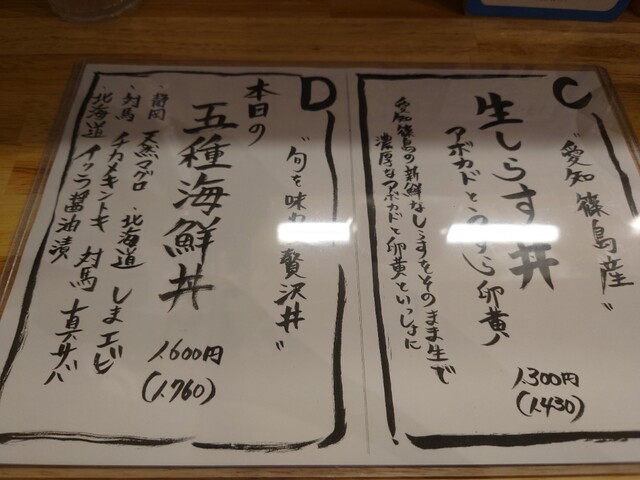 C
"愛知 篠島産"
生しらす丼
アボカドとうずら卵黄
愛知篠島の新鮮なしらすをそのまま生で
濃厚なアボカドと卵黄といっしょに
1.300円
(1.430)
D
"旬を味わう贅沢丼"
本日の
五種海鮮丼
・静岡 天然マグロ ・北海道 しまエビ
・対馬 チカメキントキ 対馬 真サバ
・北海道 イクラ醤油漬
1.600円
(1.760)